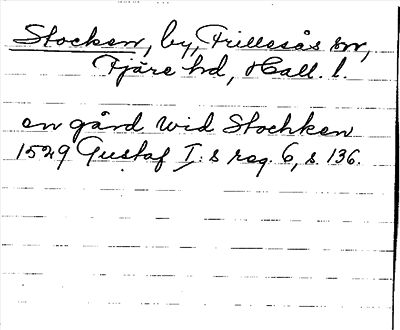 Stocken, by, Frillesås sn,
Fjäre hd, Hall. l.
en gård wid Stochken
1529 Gustaf I:s reg. 6, s. 136.